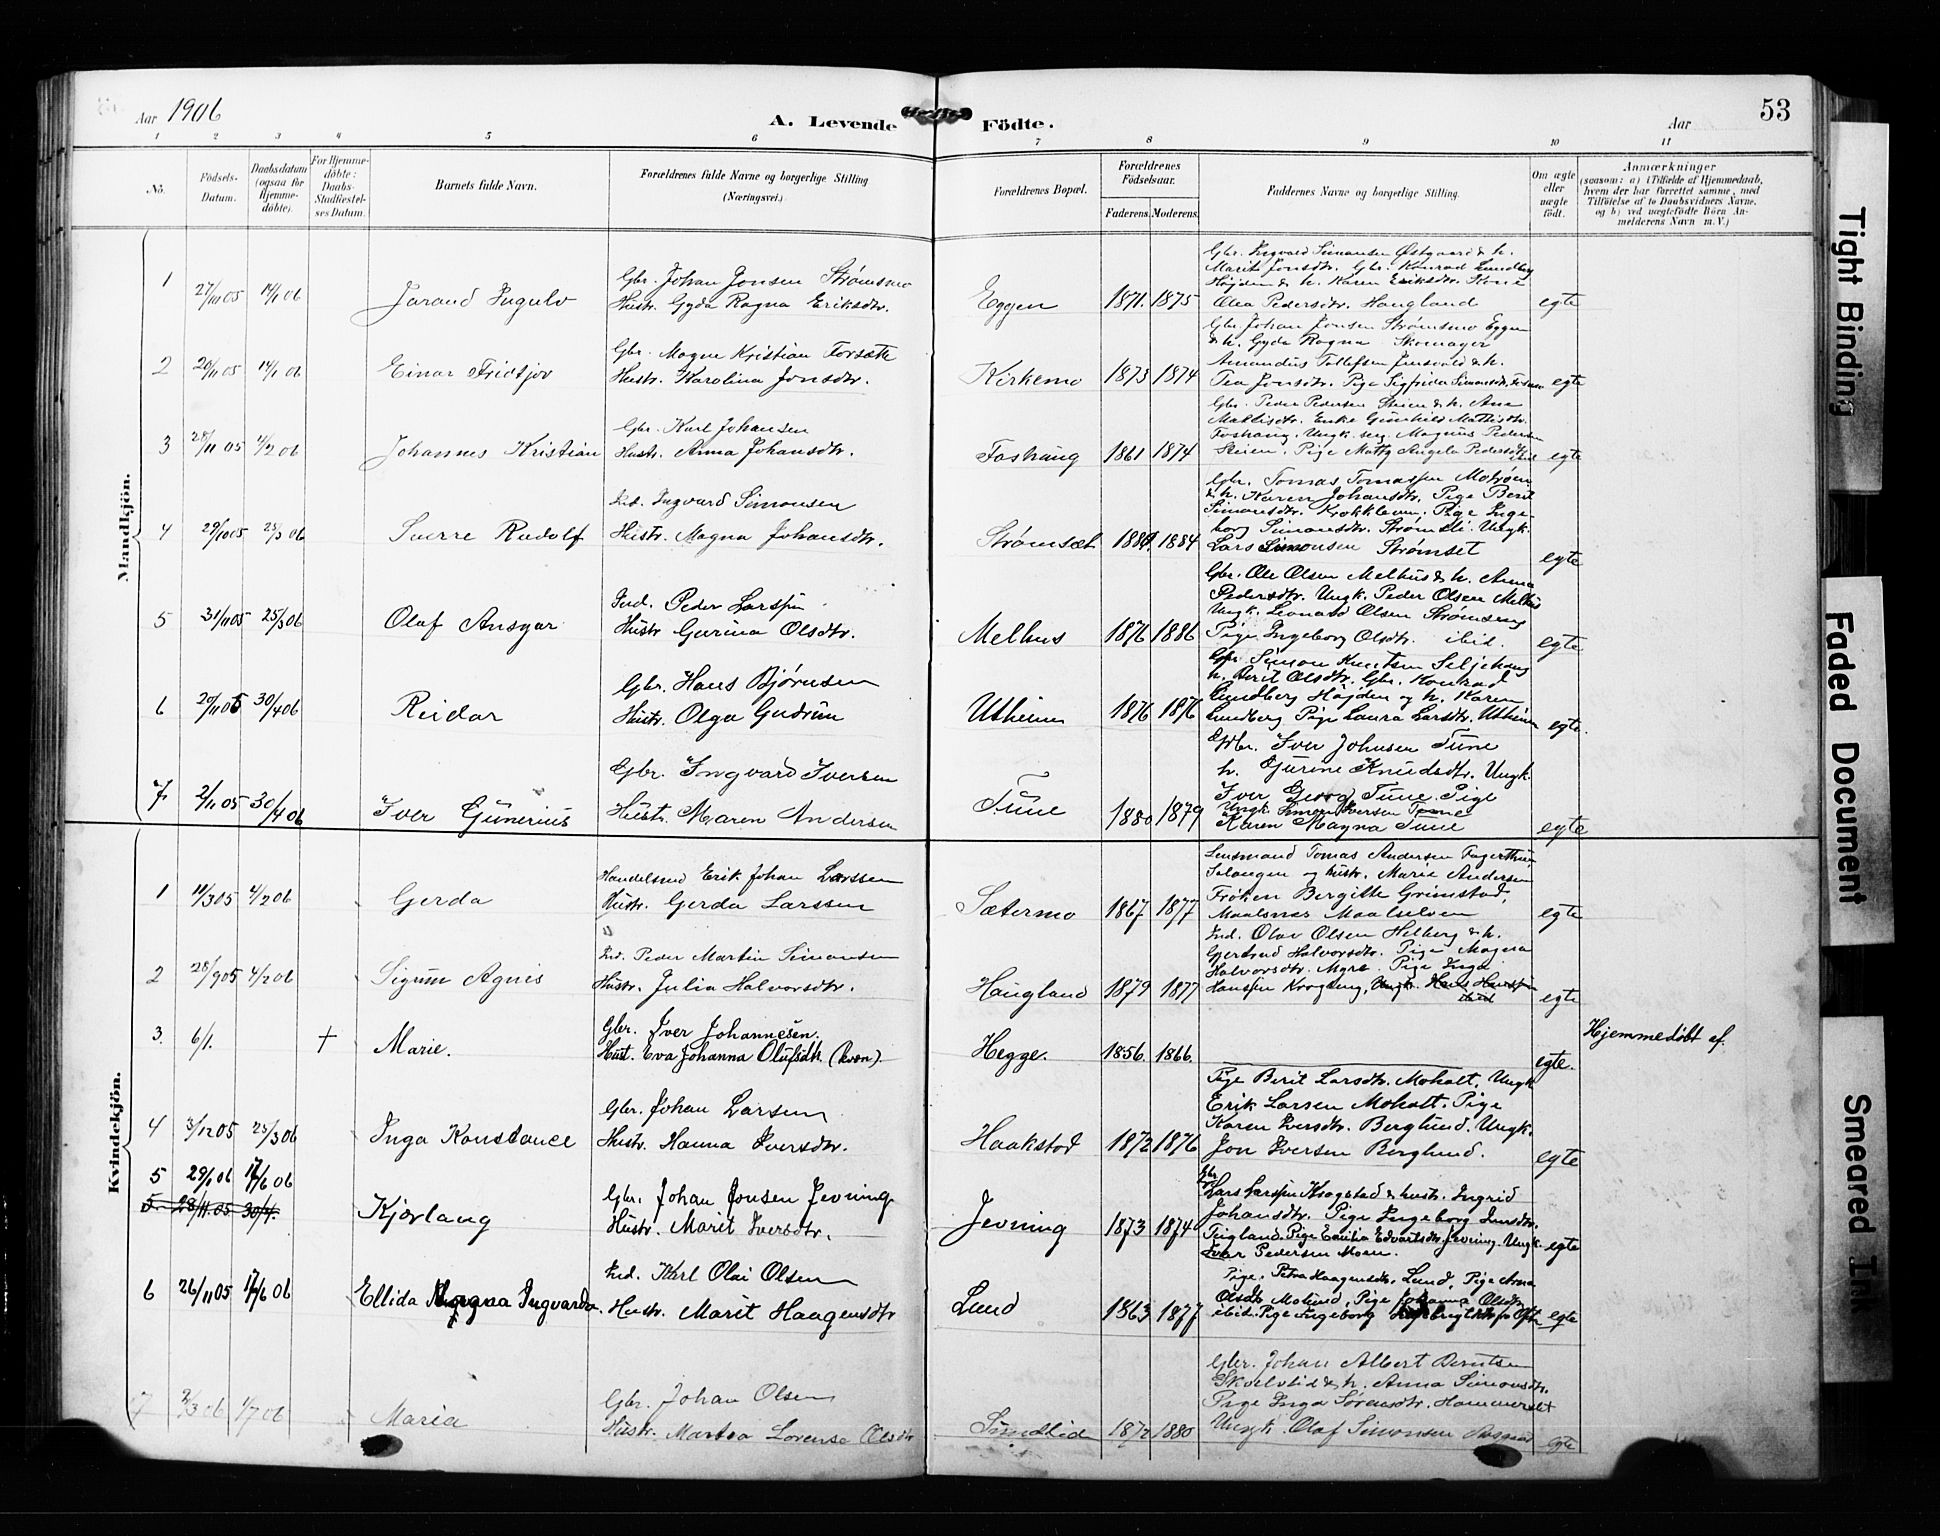 Aar 1906
A. Levende Födte.
Aar
53
1 2 3 4 5 6 7 8 9 10 11
No.
Födsels-Datum.
Daabsdatum (ogsaa for Hjemmedöbte).
For Hjemmedöbte: Daabs-Stadfæstelses Datum.
Barnets fulde Navn.
Forældrenes fulde Navne og borgerlige Stilling (Næringsvei.)
Forældrenes Bopæl.
Forældrenes Födselsaar.
Faderens. Moderens.
Faddernes Navne og borgerlige Stilling.
Om ægte eller uægte födt.
Anmærkninger
(saasom: a) i Tilfælde af Hjemmedaab, hvem der har forrettet samme, med Tilföielse af to Daabsvidners Navne, og b) ved uægtefödte Börn Anmelderens Navn m. V.)
Mandkjön.
1 27/11 05 14/1 06 Jarand Ingulv
Gbr. Johan Jonsen Strømsmo
Hustr. Gyda Ragna Eriksdtr.
Eggen 1871. 1875
Gbr. Ingvard Simonsen Østgaard & h.
Marit Jonsdtr. Gbr. Konrad Lundberg
Højden & h. Karen Eriksdtr. Kone
Olea Pedersdtr. Haugland
egte
2 20/11 05 14/1 06 Einar Fridtjov
Gbr. Magnus Kristian Forsætte
Hustr. Karolina Jonsdtr.
Kirkemo 1873 1874
Gbr. Johan Jonsen Strømsmo Eggen
& h. Gyda Ragna Skomager
Amandus Tollefsen & h.
Tea Jonsdtr. Pige Sigfrida Simonsdtr.
egte
3 28/11 05 4/2 06 Johannes Kristian
Gbr. Karl Johansen
Hustr. Anna Johansdtr.
Foshaug 1861 1874
Gbr. Peder Pedersen Steien & h. Ane
Mattisdtr. Enke Gunhild Mattisdtr.
Foshaug. Ungk. Magnus Pedersen
Steien. Pige Matty Angela Pedersdtr. ibid
egte
4 29/10 05 25/3 06 Sverre Rudolf
Ind. Ingvard Simonsen
Hustr. Magna Johansdtr.
Strømsæt 1884
Gbr. Tomas Tomassen Motrøen
& h. Karen Johansdtr. Pige Berit
Simonsdtr. Krokkleven. Pige Inge-
borg Simonsdtr. Strømsli. Ungk.
Lars Simonsen Strømset
egte
5 31/11 05 25/3 06 Olaf Ansgar
Ind. Peder Larssen
Hustr. Gurina Olsdtr.
Melhus 1876 1886
Gbr. Ole Olsen Melhus & h. Anna
Pedersdtr. Ungk. Peder Olsen Melhus
Ungk. Leonard Olsen Strømseng
Pige Ingeborg Olsdtr. ibid.
egte
6 20/11 05 30/4 06 Reidar
Gbr. Hans Bjørnsen
Hustr. Olga Gudrun
Utheim 1876 1876
Gbr. Simon Knutsen Seljehaug
h. Berit Olsdtr. Gbr. Konrad
Lundberg Højden og h. Karen
Lundberg. Pige Laura Larsdtr. Utheim
egte.
7 2/11 05 30/4 06 Iver Gunerius
Gbr. Ingvard Iversen
Hustr. Maren Andersen
Tune 1880 1879
Gbr. Iver Johnsen Tune
h. Gurine Knudsdtr. Ungk.
Iver Georg Tune. Pige
Ungk. Simon Iversen Tomo
Karen Magna Tune
egte
Kvindekjön.
1 11/3 05 4/2 06 Gerda
Handelsmd Erik Johan Larssen
Hustr. Gerda Larssen
Sætermo 1867 1877
Lensmand Tomas Andersen Fagerthun
Salangen og hustr. Marie Andersen
Frøken Bergitte Grimstad,
Maalsnes Maalselven
egte
2 28/9 05 4/2 06 Sigrun Agnis
Ind. Peder Martin Simonsen
Hustr. Julia Halvorsdtr.
Haugland 1879 1877
Ind. Olav Olsen Helberg & h.
Gjertrud Halvorsdtr. Pige Magna
Halvorsdtr. Myre. Pige Inga
Hanssen Krogseng, Ungk. Hans Hanssen
ibid
egte
3. 6/1. † Marie.
Gbr. Iver Johannesen.
Hust. Eva Johanna Olufsdtr. (kvæn).
Hegge. 1856. 1866.
egte.
Hjemmedöbt af.
4 3/12 05 25/3 06 Inga Konstance
Gbr. Johan Larsen
Hustr. Hanna Iversdtr.
Haakstad 1872 1876
Pige Berit Larsdtr. Moholt, Ungk
Erik Larsen Moholt. Pige
Karen Iversdtr. Berglund. Ungk.
Jon Iversen Berglund.
egte
5 29/1 06 17/6 06
5. 28/11.05 30/4.
Kjørlaug
Gbr. Johan Jonsen Jevning
Hustr. Marit Iversdtr.
Jevning 1873 1874
Gbr
Lars Larssen Krogstad & hustr. Ingrid
Johansdtr. Pige Ingeborg Jonsdtr.
Tingland. Pige Emilia Edvartsdtr. Jevning. Ungk.
Ivar Pedersen Moen.
egte
6 26/11 05 17/6 06 Ellida Magna Ingvarda.
Ind. Karl Olai Olsen
Hustr. Marit Haagensdtr
Lund 1863 1877
Pige. Petra Haagensdtr. Lund, Pige Anna
Olsdtr Molund, Pige Johanna Olsdtr
ibid. Pige Ingeborg
egte
7 2/3 06 1/7 06 Maria
Gbr. Johan Olsen
Hustr. Martea Lorense Olsdtr
Sundlid 1872 1880
Gbr. Johan Albert Berntsen
Skoelvlid & h. Anna Simonsdtr.
Pige Inga Sørensdtr. Hammerslet
Ungk. Olaf Simonsen Aasgaard
egte
Tight Binding
Faded Document
Smeared Ink